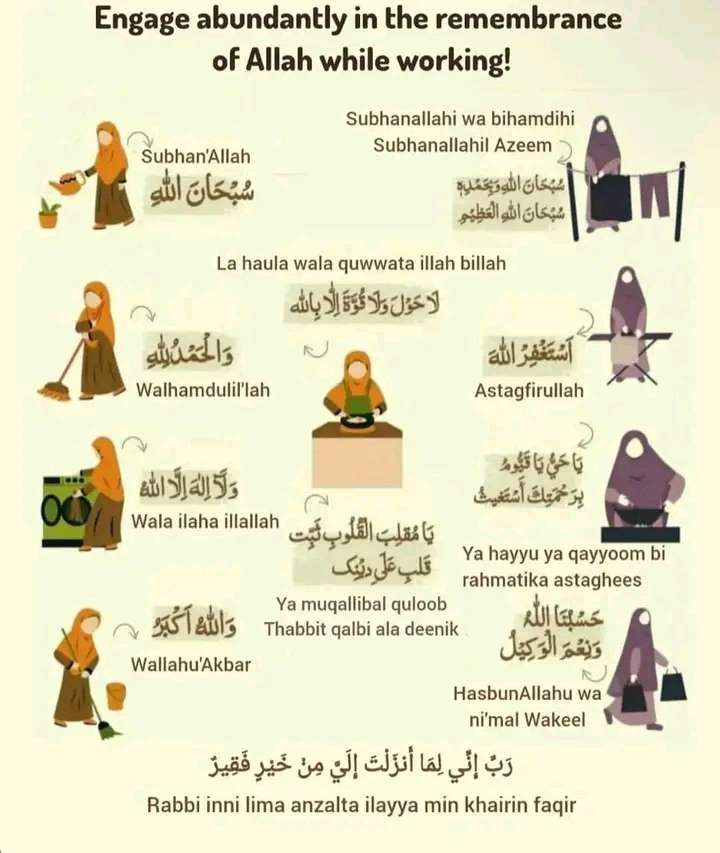 Engage abundantly in the remembrance
of Allah while working!
Subhan'Allah
سُبْحَانَ اللّٰه
Subhanallahi wa bihamdihi
Subhanallahil Azeem
سُبْحَانَ اللّٰهِ وَبِحَمْدِهِ
سُبْحَانَ اللّٰهِ الْعَظِيْمِ
La haula wala quwwata illah billah
لَا حَوْلَ وَلَا قُوَّةَ اِلَّا بِاللّٰه
وَالْحَمْدُلِلّٰهِ
Walhamdulil'lah
اَسْتَغْفِرُ اللّٰهَ
Astagfirullah
وَلَآ اِلٰهَ اِلَّا اللّٰهُ
Wala ilaha illallah
يَا حَيُّ يَا قَيُّومُ
بِرَحْمَتِكَ أَسْتَغِيثُ
Ya hayyu ya qayyoom bi
rahmatika astaghees
يَا مُقَلِبَ الْقُلُوبِ ثَبِّت
قَلبِ عَلَى دِيْنِک
Ya muqallibal quloob
Thabbit qalbi ala deenik
وَاللّٰهُ اَكْبَرُ
Wallahu'Akbar
حَسْبُنَا اللّٰهُ
وَنِعْمَ الْوَكِيْلُ
HasbunAllahu wa
ni'mal Wakeel
رَبِّ إِنِّي لِمَا أَنزَلْتَ إِلَيَّ مِنْ خَيْرٍ فَقِيرٌ
Rabbi inni lima anzalta ilayya min khairin faqir